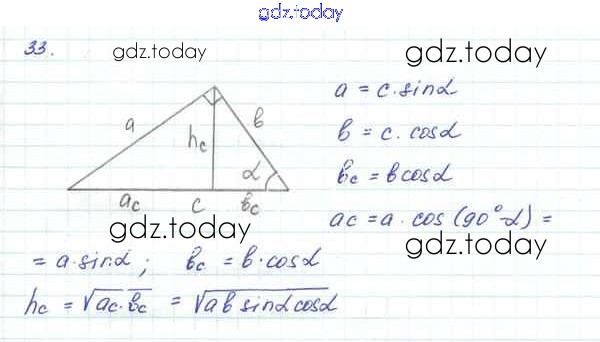 gdz.today
33.
gdz.today
gdz.today
a = c·sinα
a
b
hc
b = c·cosα
α
bc = b cosα
ac
c
bc
ac = a·cos(90°-α) =
gdz.today
gdz.today
= a·sinα; bc = b·cosα
hc = √ac·bc = √ab sinα cosα